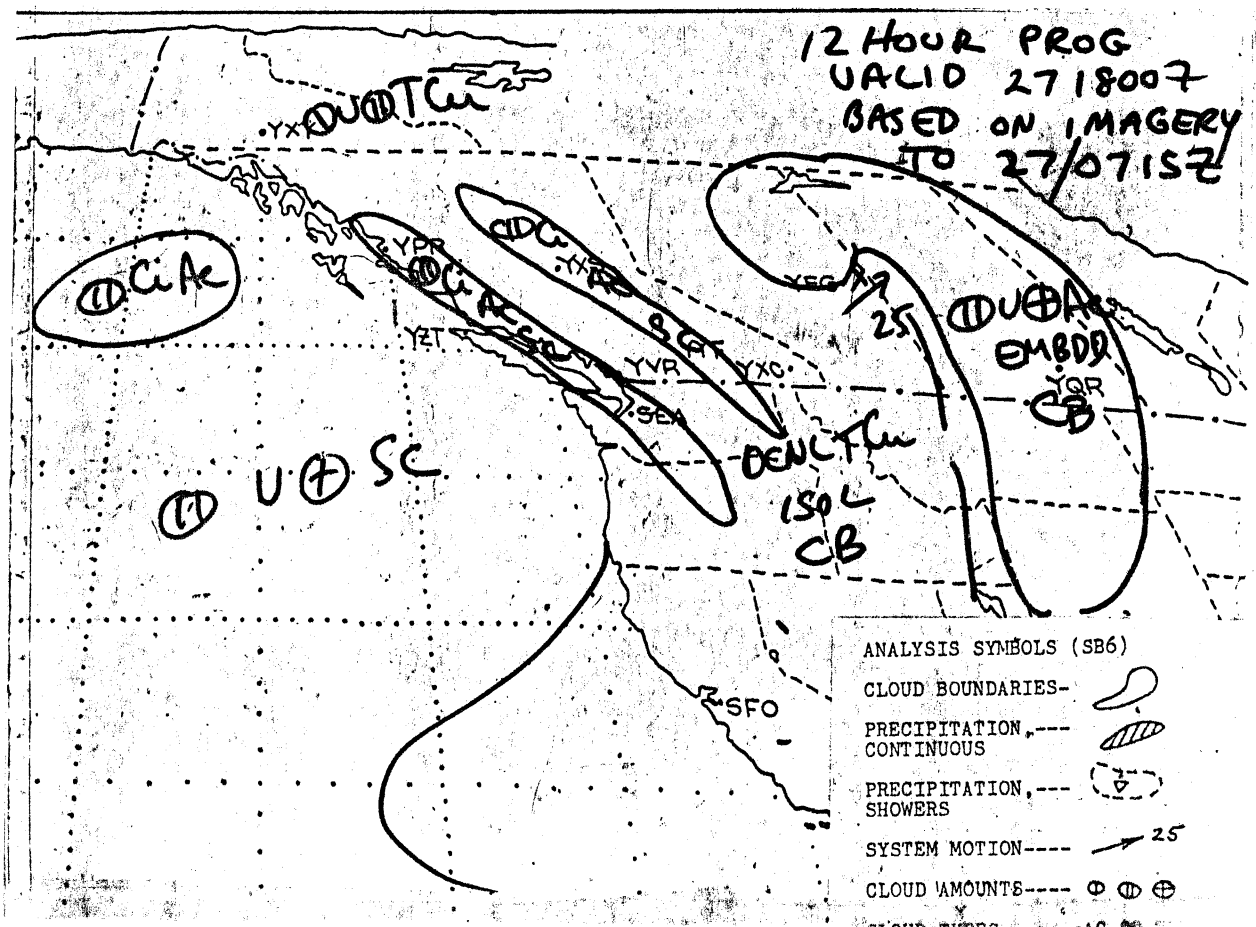 12 HOUR PROG
VALID 271800Z
BASED ON IMAGERY
TO 27/0715Z
U TCu
Ci
Ci Ac
YPR
Ci
Ac
Sc
YZT
YVR
YXC
SEA
YEG
25
U Ac
EMBDD
YQR
CB
U SC
OCNL TCu
ISOL
CB
SFO
ANALYSIS SYMBOLS (SB6)
CLOUD BOUNDARIES-
PRECIPITATION,---
CONTINUOUS
PRECIPITATION,---
SHOWERS
SYSTEM MOTION---- 25
CLOUD AMOUNTS----